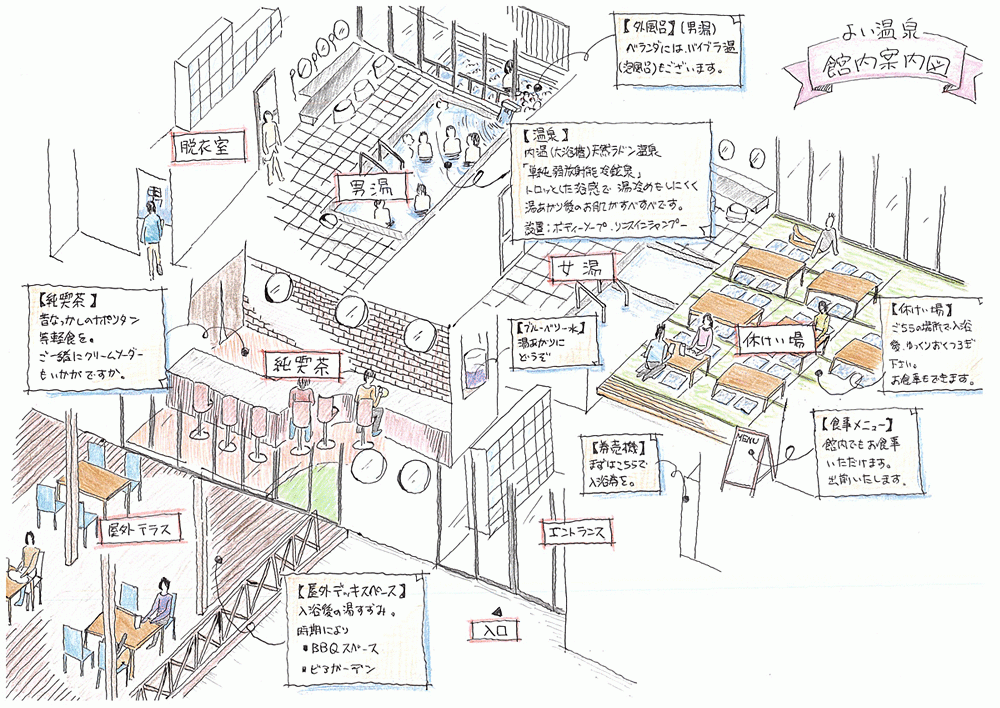 よい温泉
館内案内図
【外風呂】(男湯)
ベランダには、バイブラ湯
(泡風呂)もございます。
脱衣室
男
男湯
【温泉】
内湯(大浴槽)天然ラドン温泉
「単純弱放射能冷鉱泉」
トロッとした浴感で湯冷めもしにくく
湯あがり後のお肌がすべすべです。
設置：ボディーソープ・リンスインシャンプー
女湯
【純喫茶】
昔なつかしのナポリタン
等軽食を。
ご一緒にクリームソーダー
もいかがですか。
純喫茶
【ブルーベリー水】
湯あがりに
どうぞ
休けい場
【休けい場】
こちらの場所で入浴
後、ゆっくりおくつろぎ
下さい。
お食事もできます。
【券売機】
まずはこちらで
入浴券を。
MENU
【食事メニュー】
館内でもお食事
いただけます。
出前いたします。
屋外テラス
エントランス
【屋外デッキスペース】
入浴後の湯すずみ。
時期により
■BBQスペース
■ビアガーデン
入口